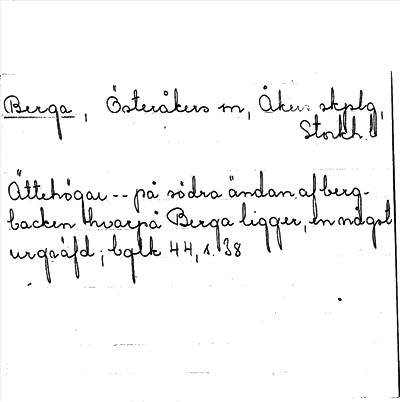 Berga, Österåkers sn, Åkers skplg,
Stockh.
Ättehögar -- på södra ändan af berg-
backen hvarpå Berga ligger, en något
urgräfd; bglk 44, s. 38